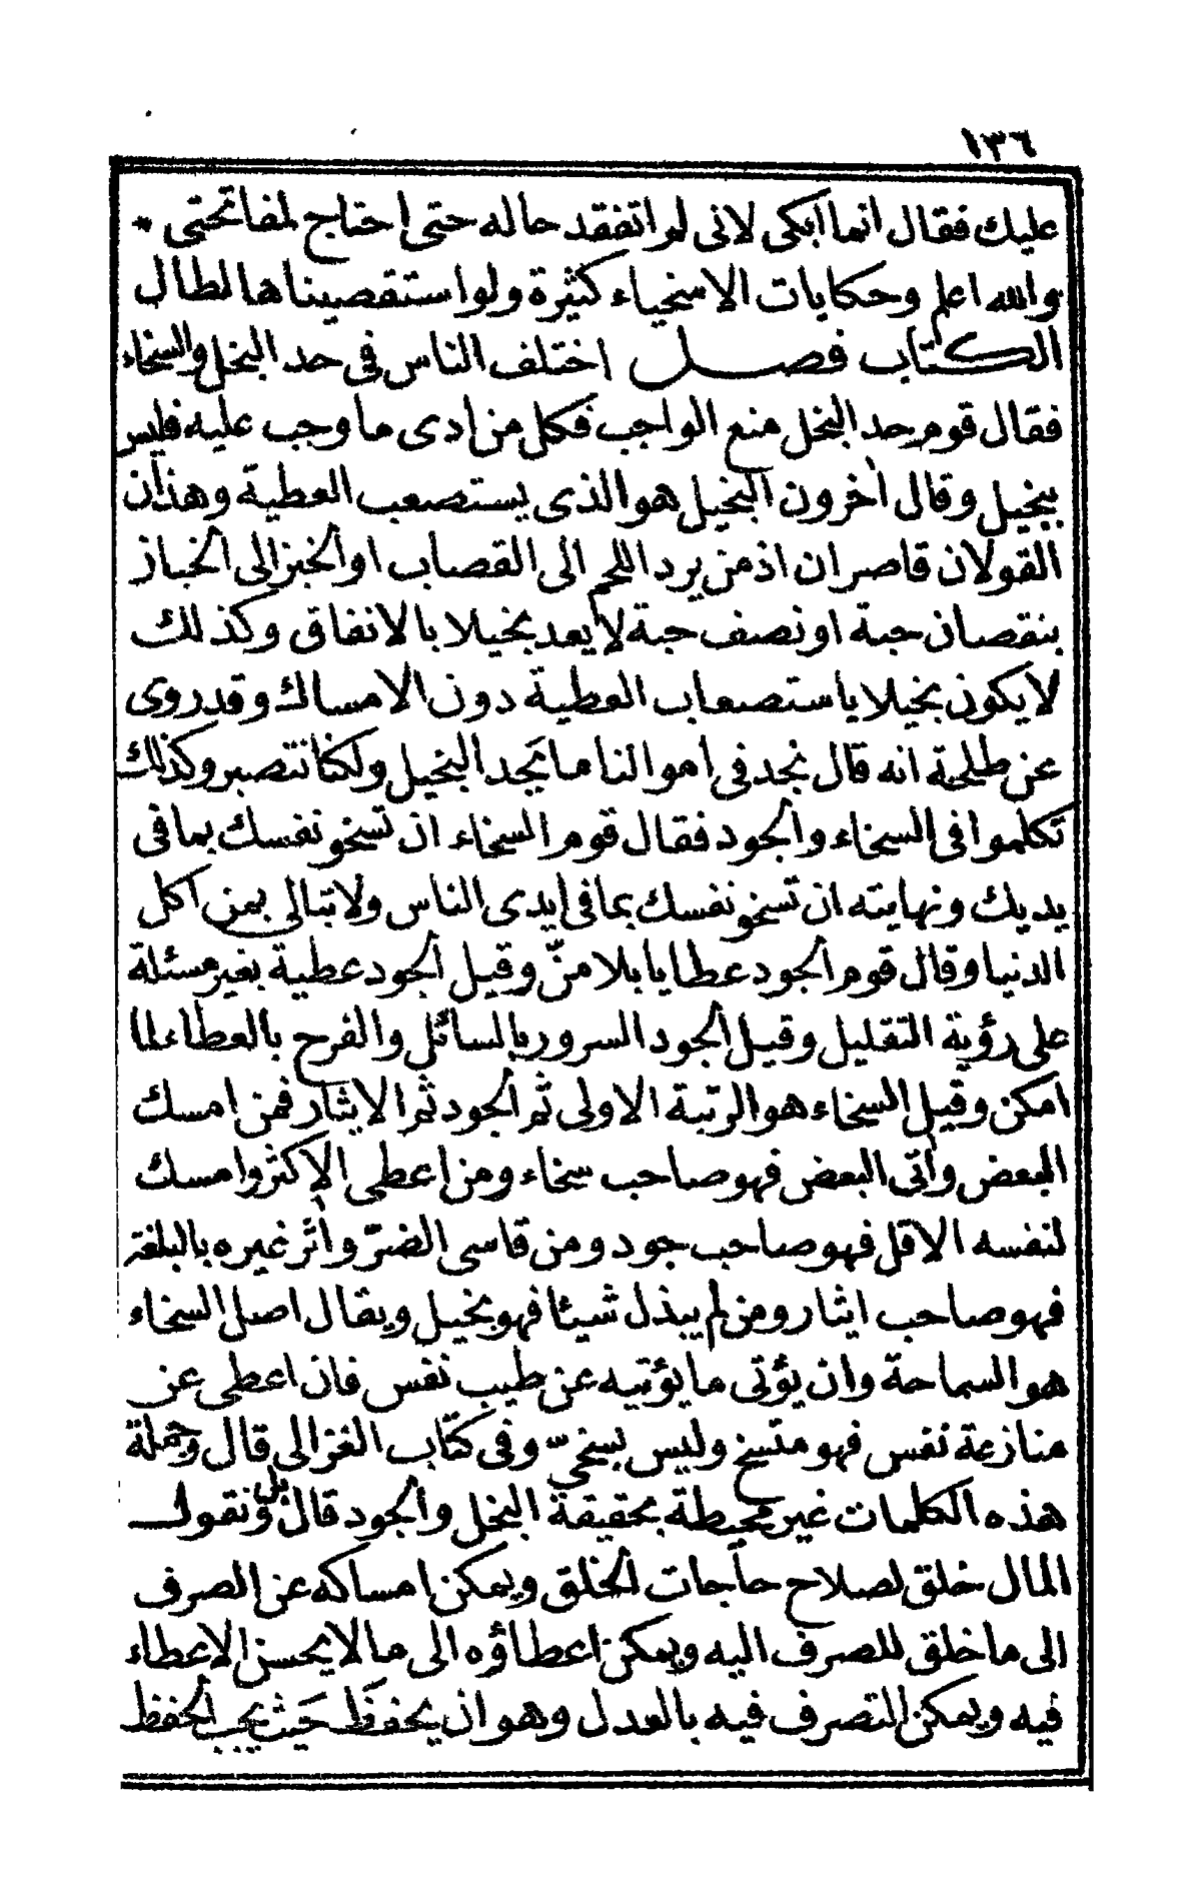 ١٣٦
عليك فقال انما ابكى لانى لم اتفقد حاله حتى احتاج لمفاتحتى *
والله اعلم وحكايات الاسخياء كثيرة ولو استقصيناها لطال
الكتاب فصل اختلف الناس فى حد البخل والسخاء
فقال قوم حد البخل منع الواجب فكل من ادى ما وجب عليه فليس
ببخيل وقال اخرون البخيل هو الذى يستصعب العطية وهذان
القولان قاصران اذ من يرد اللحم الى القصاب او الخبز الى الخباز
بنقصان حبة او نصف حبة لا يعد بخيلا بالانفاق وكذلك
لا يكون بخيلا باستصعاب العطية دون الامساك وقد روى
عن طلحة انه قال نجد فى اموالنا ما يجد البخيل ولكنا نتصبر وكذلك
تكلموا فى السخاء والجود فقال قوم السخاء ان تسخو نفسك بما فى
يديك ونهايته ان تسخو نفسك بما فى ايدى الناس ولا تبالى بمن اكل
الدنيا وقال قوم الجود عطايا بلا منّ وقيل الجود عطية بغير مسئلة
على رؤية التقليل وقيل الجود السرور بالسائل والفرح بالعطاء لما
امكن وقيل السخاء هو الرتبة الاولى ثم الجود ثم الايثار فمن امسك
البعض وأتى البعض فهو صاحب سخاء ومن اعطى الاكثر وامسك
لنفسه الاقل فهو صاحب جود ومن قاسى الضرّ وأثر غيره بالبلغة
فهو صاحب ايثار ومن لم يبذل شيئا فهو بخيل ويقال اصل السخاء
هو السماحة وان يؤتى ما يؤتيه عن طيب نفس فان اعطى عن
منازعة نفس فهو متسخ وليس بسخىّ وفى كتاب الغزالى قال وجملة
هذه الكلمات غير محيطة بحقيقة البخل والجود قال بل ونقول
المال خلق لصلاح حاجات الخلق ويمكن امساكه عن الصرف
الى ما خلق للصرف اليه ويمكن اعطاؤه الى ما لا يحسن الاعطاء
فيه ويمكن التصرف فيه بالعدل وهو ان يحفظ حيث يجب الحفظ